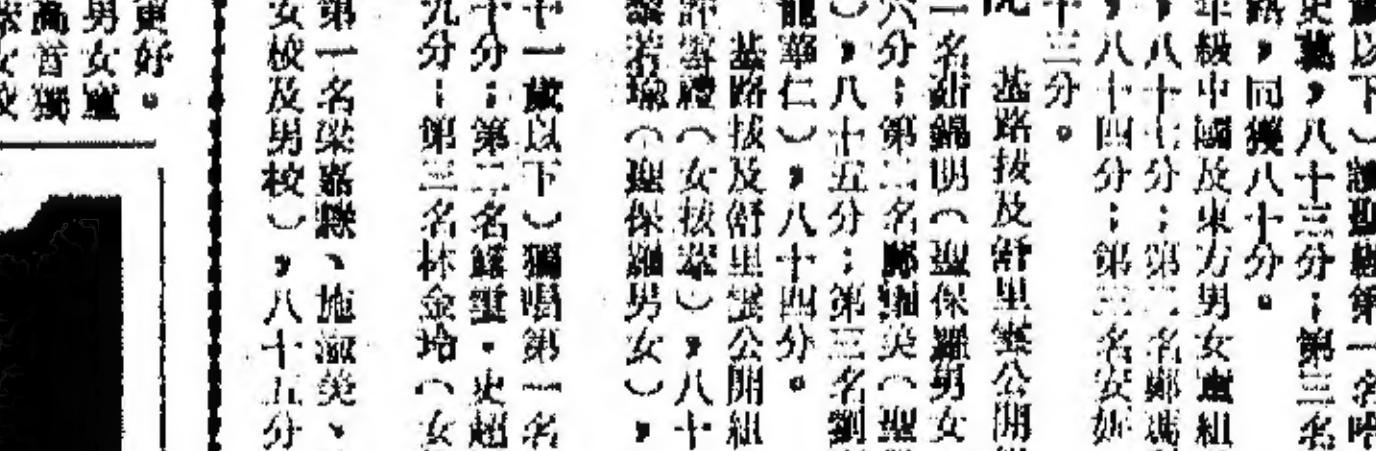 以下）讀聖經第一名
，八十三分；第三名
，同獲八十分。
年級中國及東方男女盧組
，八十七分；第二名鄭瑪
，八十四分；第三名安妮
十三分。
基路拔及舒里雲公開
一名 錦明（聖保羅男女
六分；第二名鄭 美（聖
），八十五分；第三名劉
龍華仁），八十四分。
基路拔及舒里雲公開組
禮（女拔萃），八十
黎若瑜（聖保羅男女），
十一歲以下）獨唱第一名
十分；第二名 雲．史超
九分；第三名林金玲（女
第一名梁嘉 、施淑美、
女校及男校），八十五分
更好。
男女盧
高音獨
女校